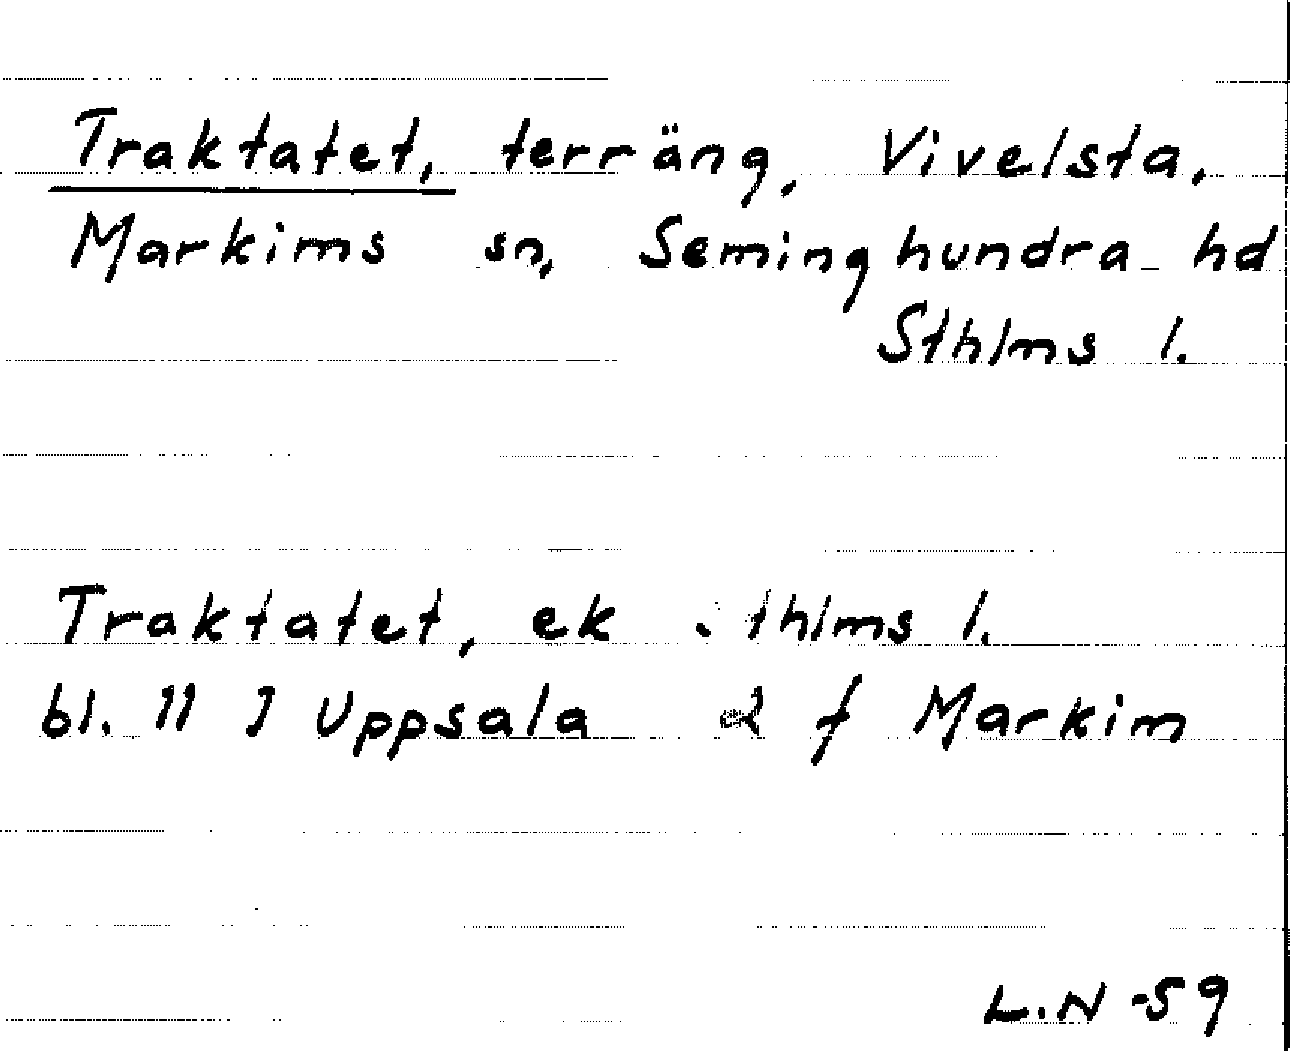 Traktatet, terräng, Vivelsta,
Markims sn, Seminghundra hd
Sthlms l.
Traktatet, ek Sthlms l.
bl. 11 J Uppsala d f Markim
L.N -59